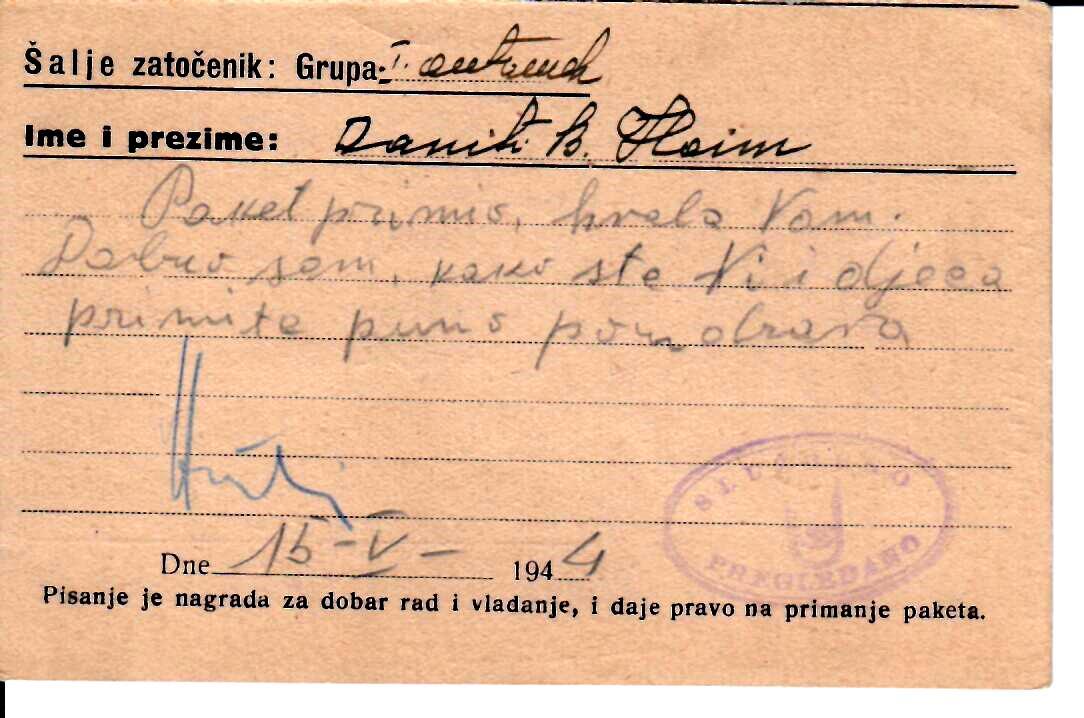 Šalje zatočenik: Grupa: I.
Ime i prezime: Daniti B. Haim
Paket primio, hvala Vam.
Dobro sam, kako ste Vi i djeca
primite puno pozdrava
SLUŽBENO
PREGLEDANO
Dne 15-V- 1944
Pisanje je nagrada za dobar rad i vladanje, i daje pravo na primanje paketa.